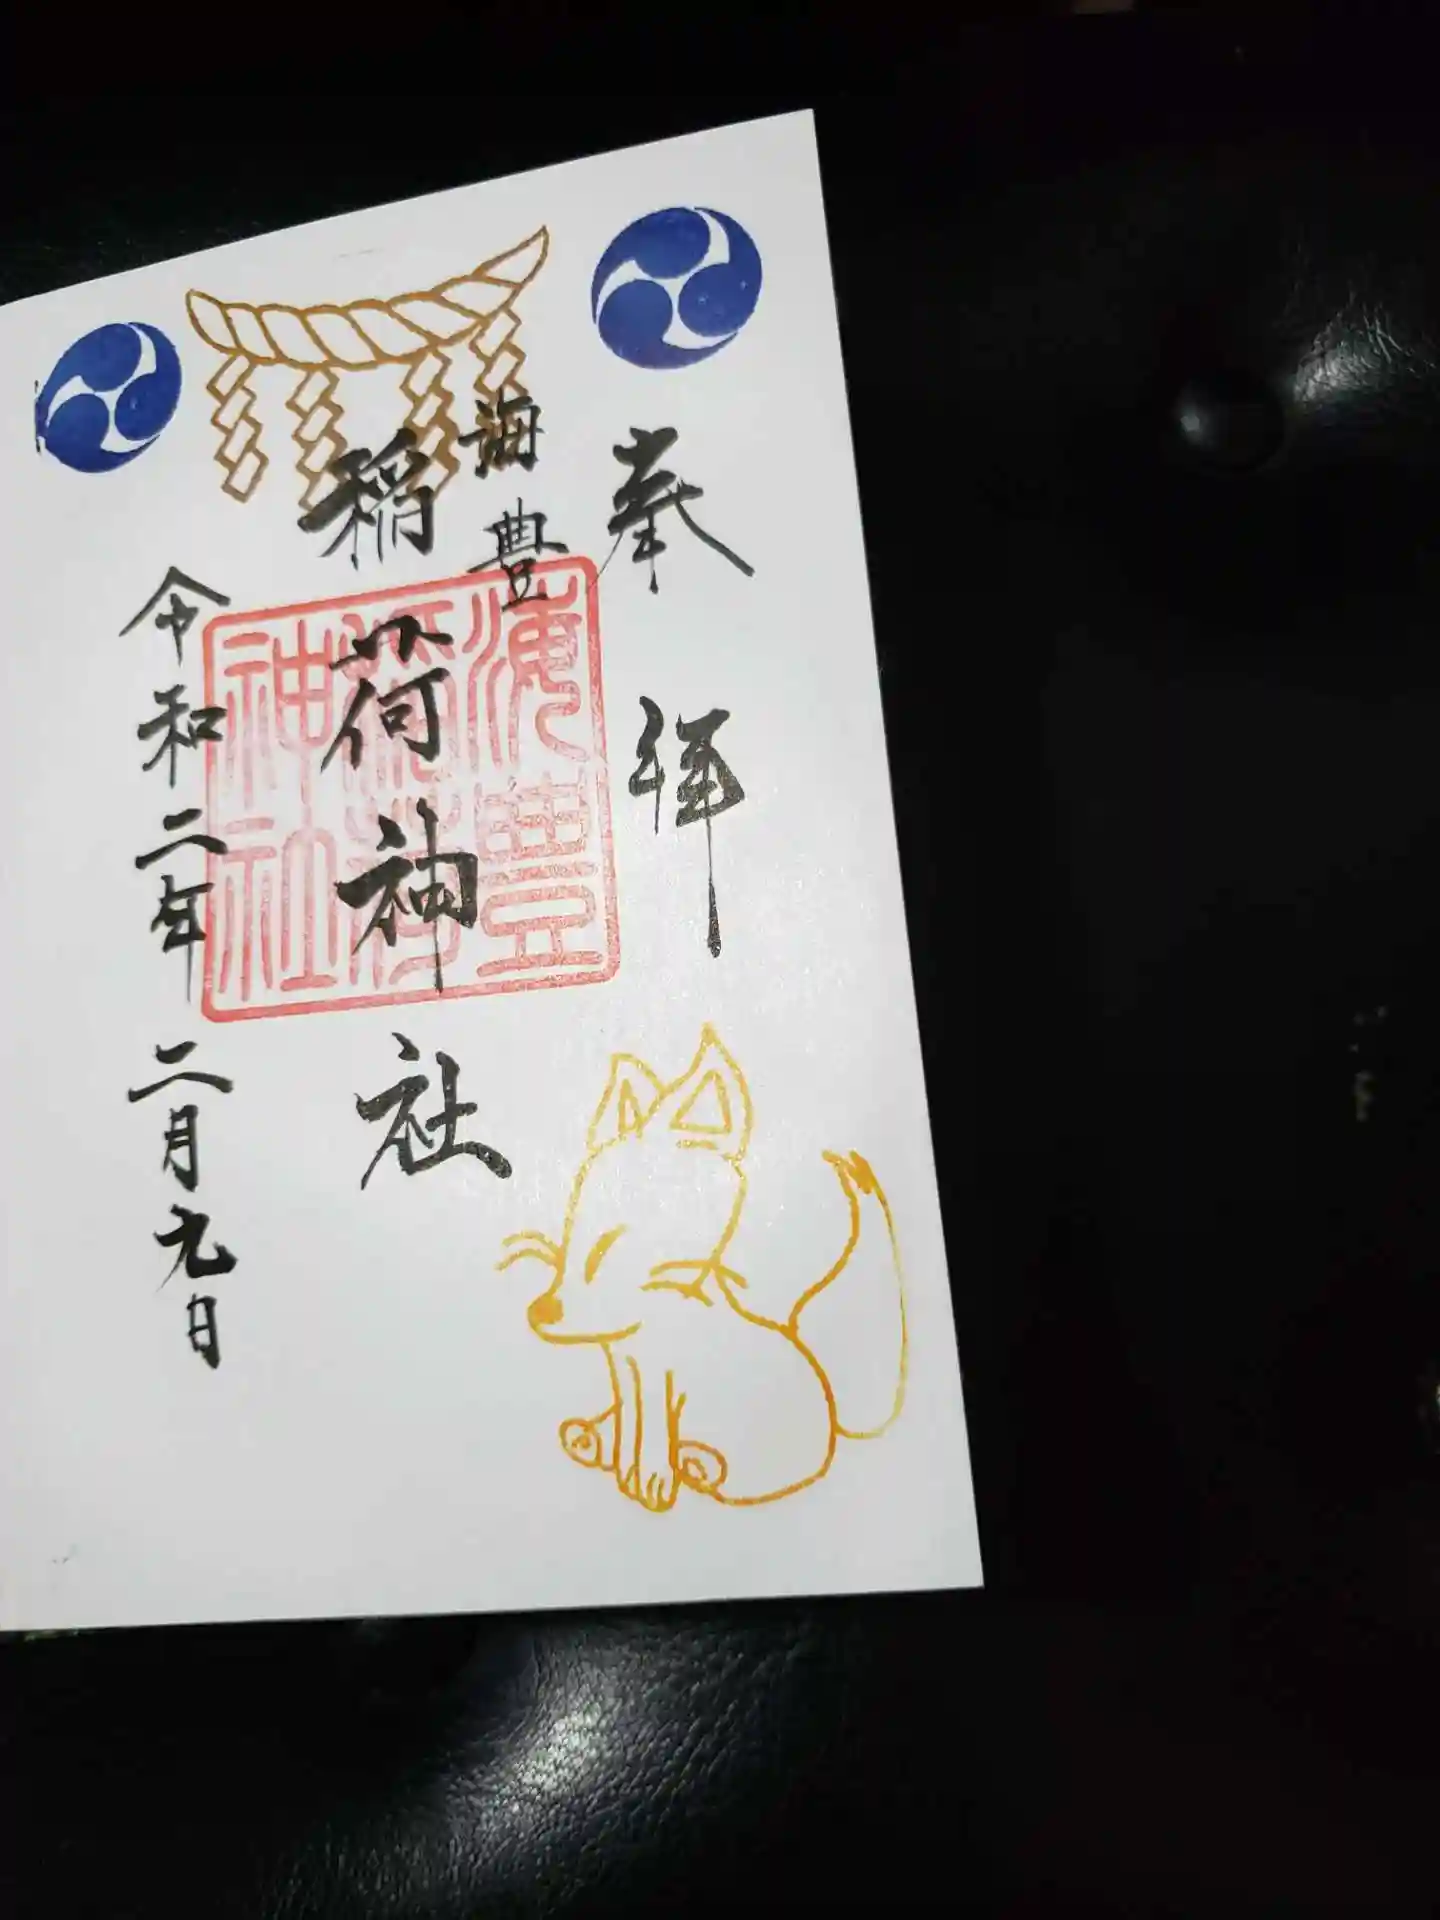 奉拝
海豊
稲荷神社
令和二年 二月九日
海豊
稲荷
神社